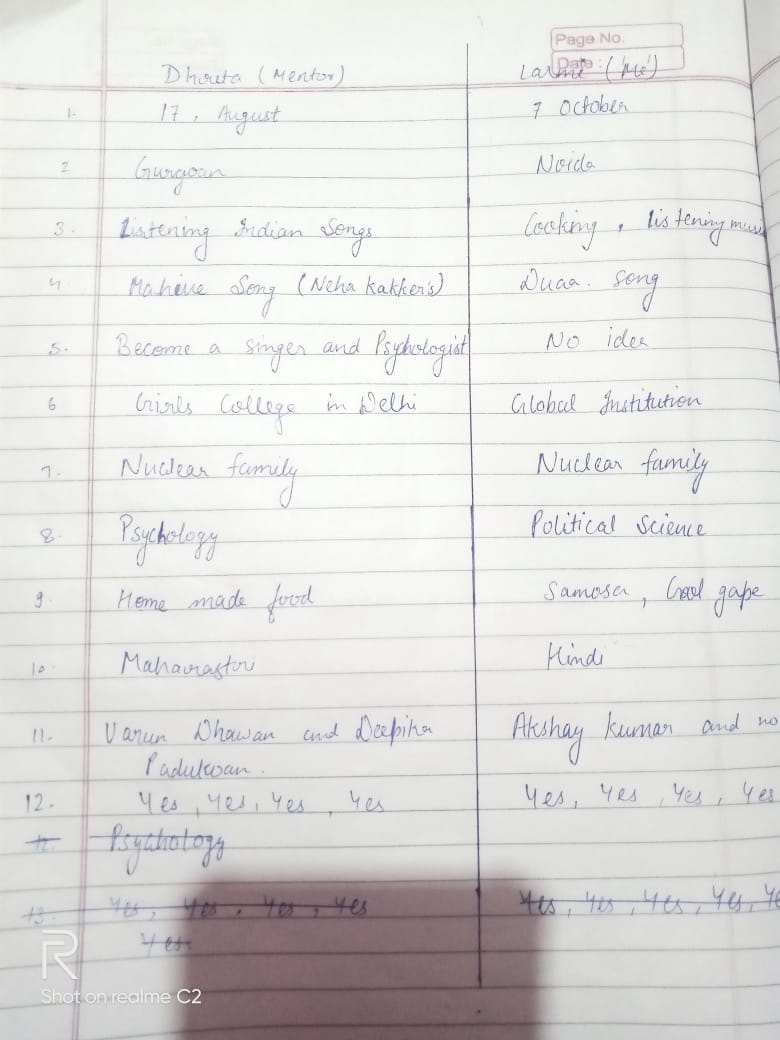 Page No.
Date :
Dhruta (Mentor) (Me)
1. 17, August 7 October
2 Gurgoan Noida
3. Listening Indian Songs Cooking, listening
4. Song (Neha Kakker's) Duaa. song
5. Become a singer and Psychologist No idea
6 Girls College in Delhi Global Institution
7. Nuclear family Nuclear family
8. Psychology Political Science
9. Home made food Samosa, Gol gape
10. Hindi
11. Varun Dhawan and Deepika Akshay Kumar and no
Padukoan.
12. Yes, Yes, Yes, Yes Yes, Yes, Yes, Yes
Psychology
13. Yes, Yes, Yes, Yes Yes, Yes, Yes, Yes, Ye
Yes
R
Shot on realme C2